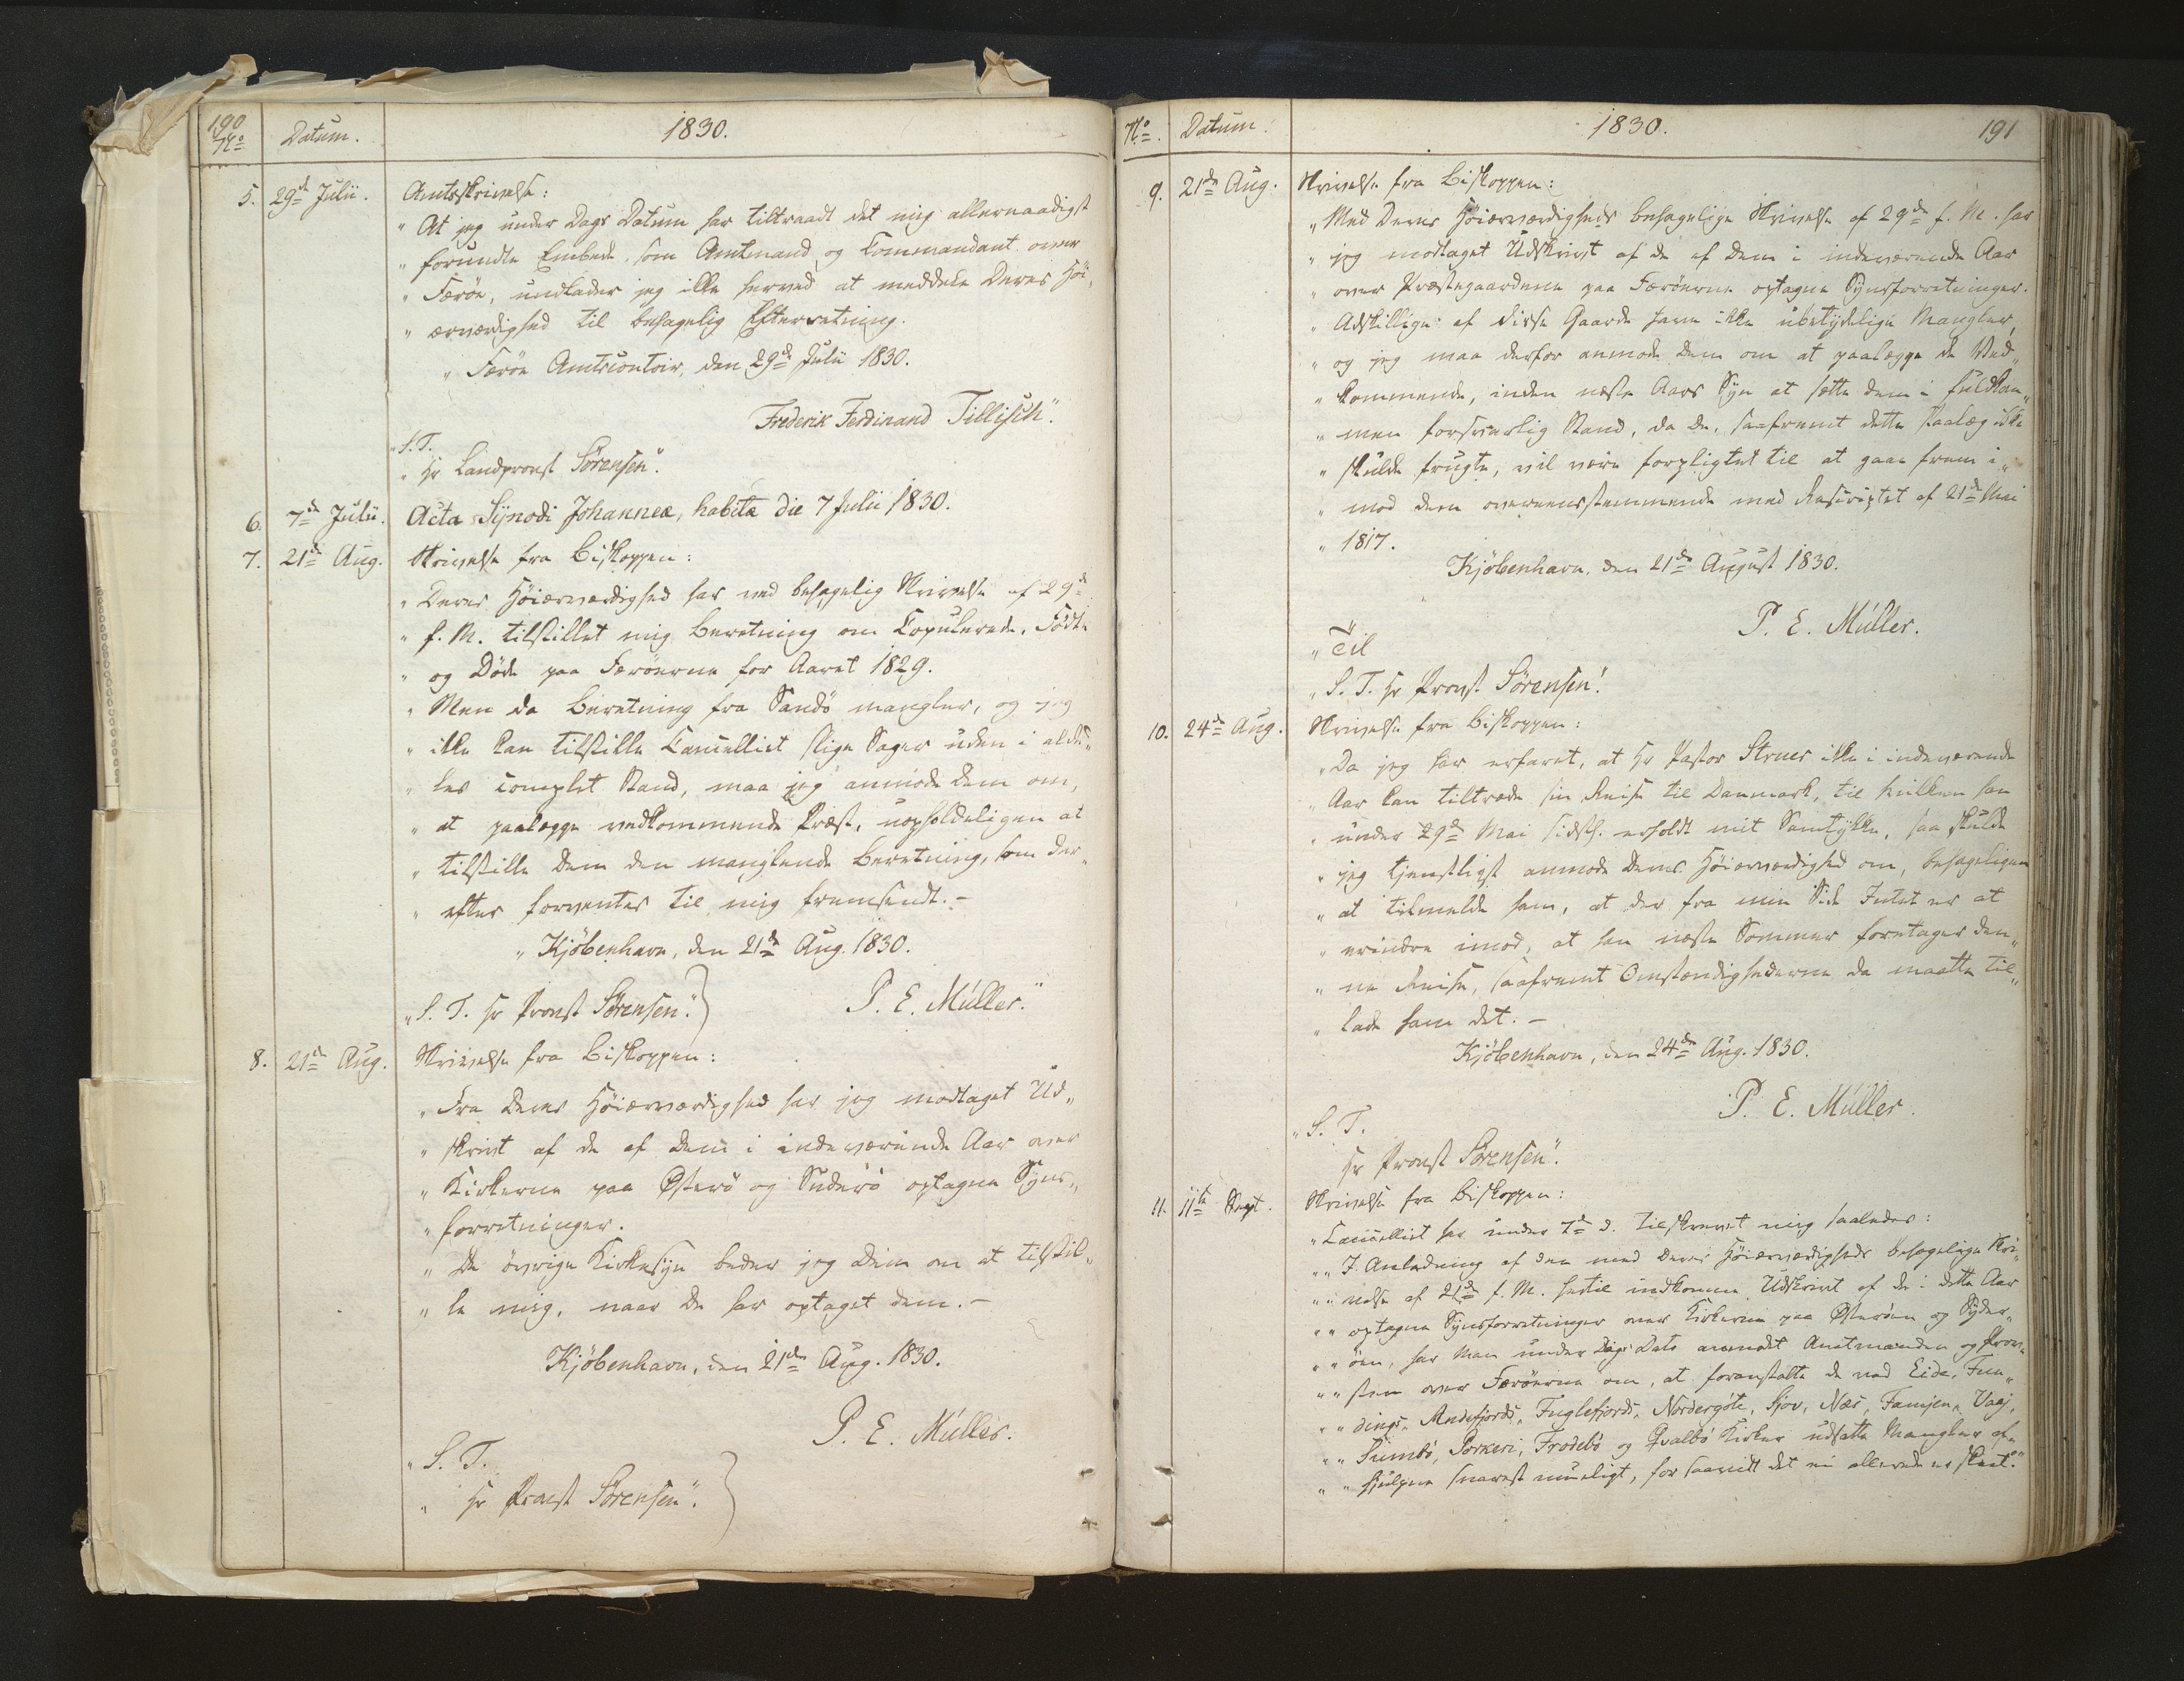 190
No Datum. 1830.
5. 29de Julii. Amtsskrivelse:
„ At jeg under Dags Datum har tiltraadt det mig allernaadigst
„ forundte Embede som Amtmand og Commandant over
„ Færöe, undlader jeg ikke herved at meddele Deres Höi„
„ ærværdighed til behagelig Efterretning.
„ Færöe Amtscontoir, den 29de Julii 1830.
Frederik Ferdinand Tillisch".
„ S. T.
„ Hr Landprovst Sörensen".
6. 7de Julii. Acta Synodi Johanneæ, habita die 7 Julii 1830.
7. 21de Aug. Skrivelse fra Biskoppen:
„ Deres Höiærværdighed har ved behagelig Skrivelse af 29de
„ f. M. tilstillet mig Beretning om Copulerede, Födte
„ og Döde paa Færöerne for Aaret 1829.
„ Men da Beretning fra Sandö mangler, og jeg
„ ikke kan tilstille Cancelliet slige Sager uden i alde„
„ les complet Stand, maa jeg anmode Dem om,
„ at paalægge vedkommende Præst, uopholdeligen at
„ tilstille Dem den manglende Beretning, som der„
„ efter forventes til mig fremsendt. –
„ Kjöbenhavn, den 21de Aug. 1830.
„ S. T. Hr Provst Sörensen". P. E. Müller."
8. 21de Aug. Skrivelse fra Biskoppen:
„ Fra Deres Höiærværdighed har jeg modtaget Ud„
„ skrivt af de af Dem i indeværende Aar over
„ Kirkerne paa Österö og Suderö optagne Syns„
„ forretninger.
„ De övrige Kirkesyn beder jeg Dem om at tilstil„
„ le mig, naar De har optaget dem. –
Kjöbenhavn, den 21de Aug. 1830.
P. E. Müller.
„ S. T.
„ Hr Provst Sörensen".
No Datum. 1830. 191
9. 21de Aug. Skrivelse fra Biskoppen:
„ Med Deres Höiærværdigheds behagelige Skrivelse af 29de f. M. har
„ jeg modtaget Udskrivt af de af Dem i indeværende Aar
„ over Præstegaardene paa Færöerne optagne Synsforretninger.
„ Adskillige af disse Gaarde have ikke ubetydelige Mangler,
„ og jeg maa derfor anmode Dem om at paalægge de Ved„
„ kommende, inden næste Aars Syn at sætte dem i fuldkom„
„ men forsvarlig Stand, da De, saafremt dette Paalæg ikke
„ skulde frugte, vil være forpligtet til at gaae frem i„
„ mod dem overeensstemmende med Rescriptet af 21de Mai
„ 1817.
Kjöbenhavn, den 21de August 1830.
P. E. Müller.
„ Til
„ S. T. Hr Provst Sörensen".
10. 24de Aug. Skrivelse fra Biskoppen:
„ Da jeg har erfaret, at Hr Pastor Strues ikke i indeværende
„ Aar kan tiltræde sin Reise til Danmark, til hvilken han
„ under 29de Mai sidstl. erholdt mit Samtykke, saa skulde
„ jeg tjenstligst anmode Deres Höiærværdighed om, behageligen
„ at tilmelde ham, at der fra min Side Intet er at
„ erindre imod, at han næste Sommer foretager den„
„ ne Reise, saafremt Omstændighederne da maatte til„
„ lade ham det. –
Kjöbenhavn, den 24de Aug. 1830.
P. E. Müller.
„ S. T.
Hr Provst Sörensen".
11. 11te Sept. Skrivelse fra Biskoppen:
„ Cancelliet har under 7de d. tilskrevet mig saaledes:
„ „ I Anledning af den med Deres Höiærværdigheds behagelige Skri„
„ „ velse af 21de f. M. hertil indkomne Udskrivt af de i dette Aar
„ „ optagne Synsforretninger over Kirkerne paa Österöen og Syder„
„ „ öen, har man under Dags Dato anmodet Amtmanden og Prov„
„ „ sten over Færöerne om, at foranstalte de ved Eide, Fun„
„ „ dings, Andefjords, Fuglefjords, Nordergöte, Sjov, Næs, Famjen, Vaaj,
„ „ Sumbö, Porkeri, Frodebö og Qvalbö Kirker udsatte Mangler af„
„ „ hjulpne snarest mueligt, for saavidt det ei allerede er skeet."